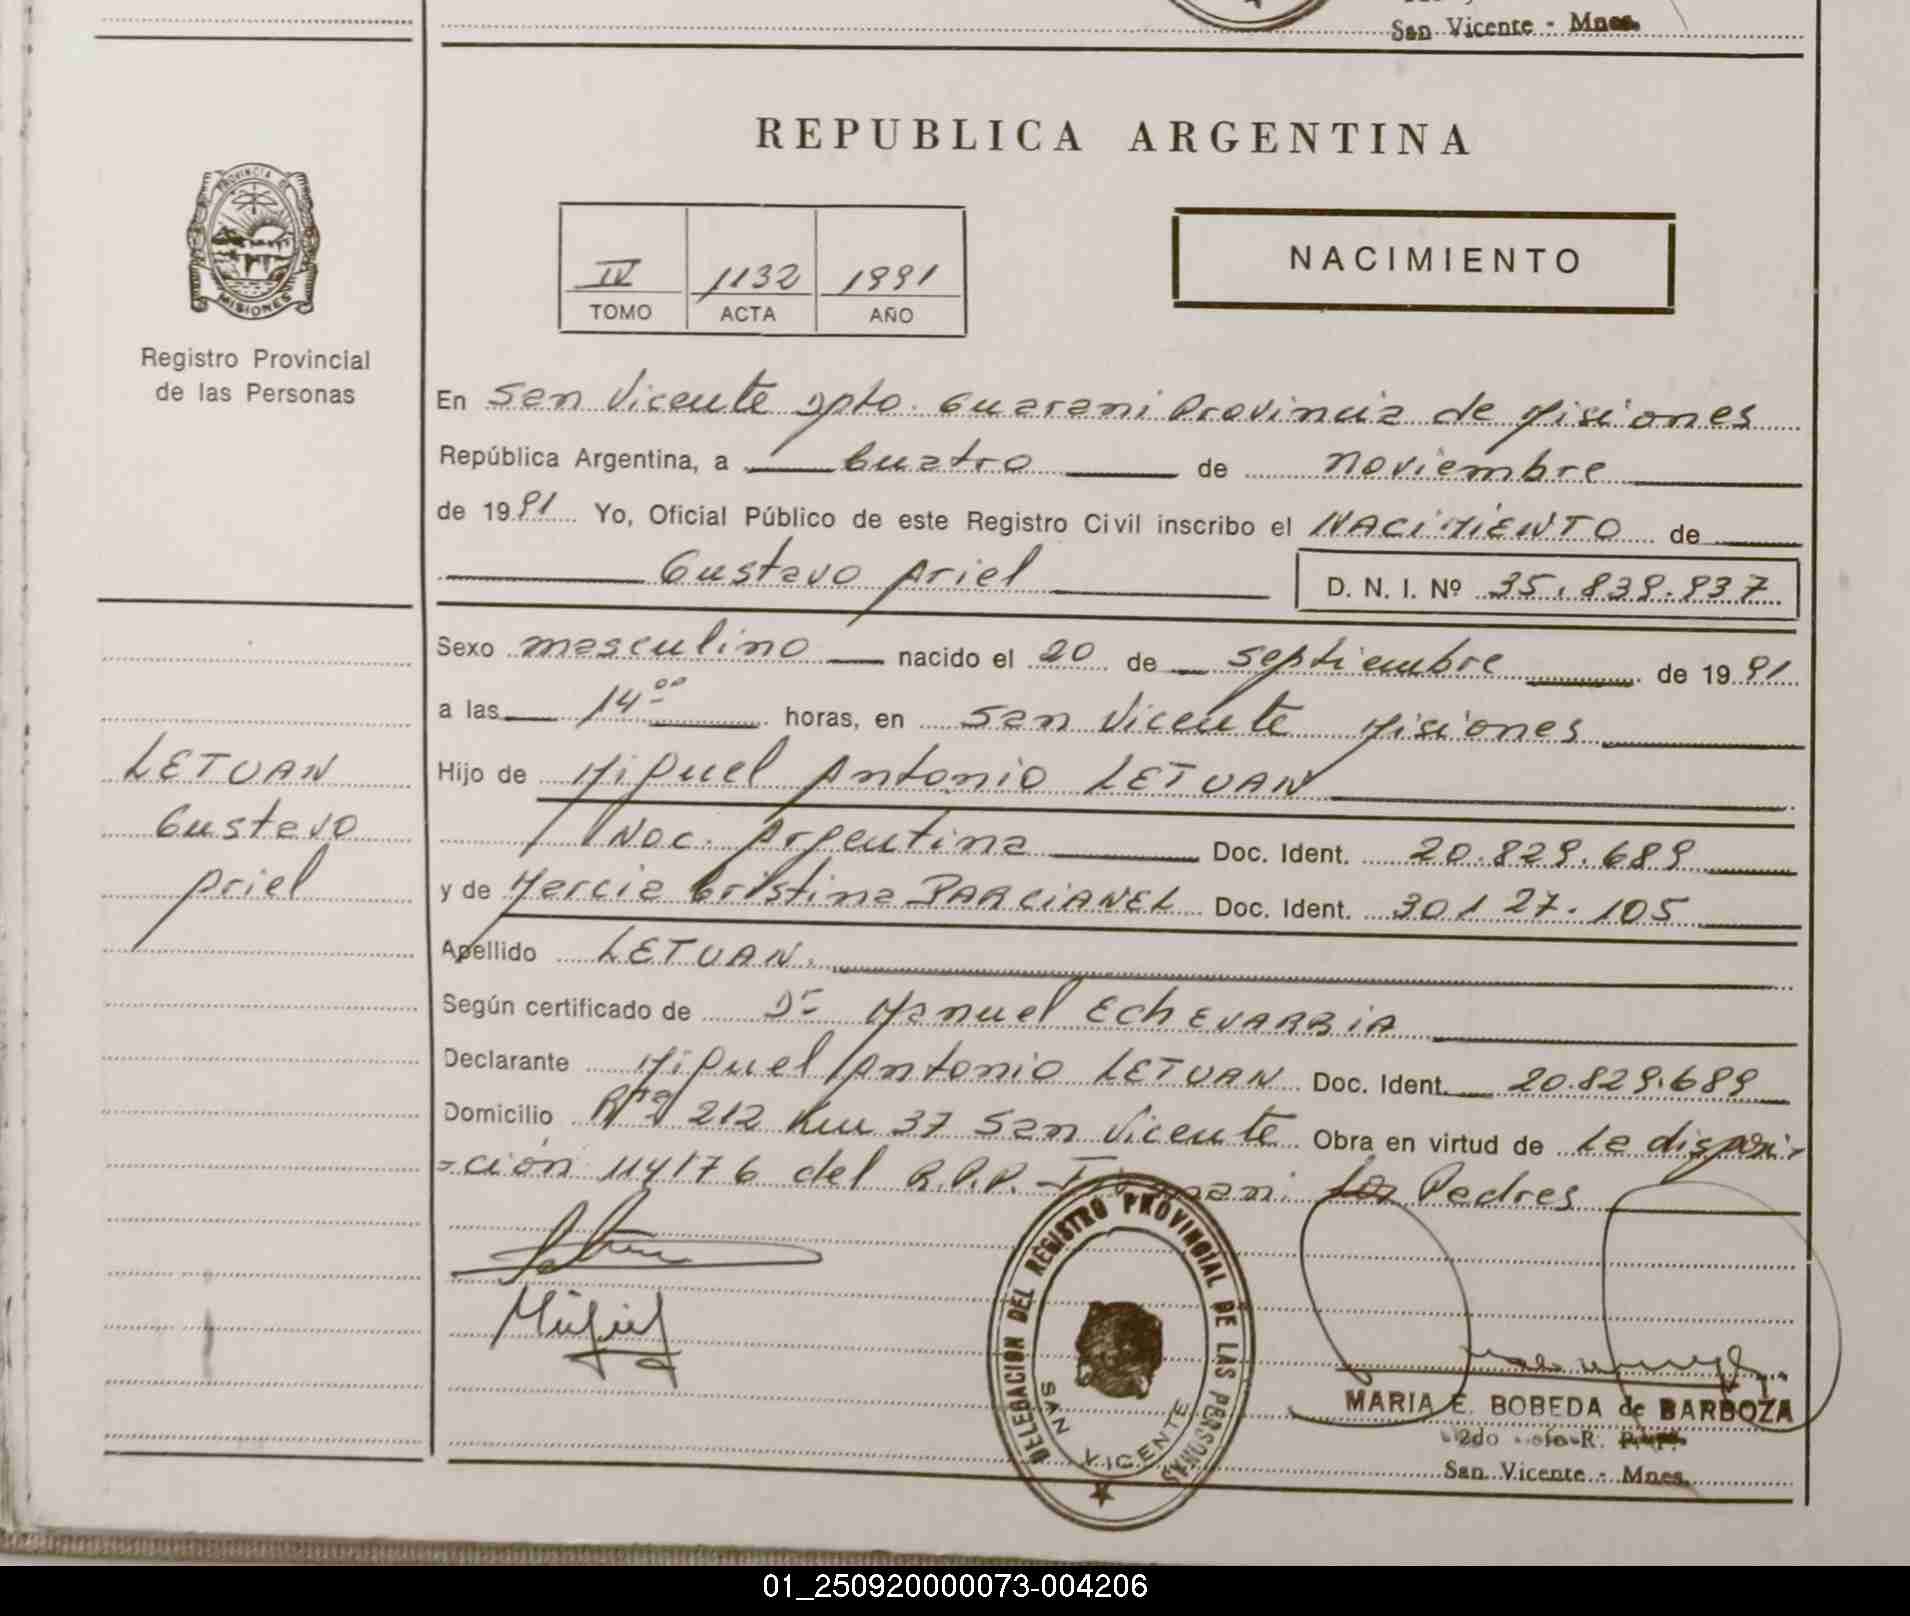 San Vicente - Mnes.
REPUBLICA ARGENTINA
PROVINCIA DE
MISIONES
Registro Provincial
de las Personas
IV 1132 1991
TOMO ACTA AÑO
NACIMIENTO
En San Vicente Dpto. Guarani Provincia de Misiones
República Argentina, a Cuatro de noviembre
de 1991 Yo, Oficial Público de este Registro Civil inscribo el NACIMIENTO de
Gustavo Ariel D. N. I. Nº 35.839.937
Sexo masculino nacido el 20 de septiembre de 1991
a las 14 00 horas, en San Vicente Misiones
Hijo de Miguel Antonio LETUAN
Nac. Argentina Doc. Ident. 20.829.689
y de Marcia Cristina Doc. Ident. 30127.105
Apellido LETUAN.
Según certificado de Dr Manuel EChEVARRIA
Declarante Miguel Antonio LETUAN Doc. Ident. 20.829.689
Domicilio Rta 212 Km 37 San Vicente Obra en virtud de La disposi-
-ción 114/76 del R.P.P. los Padres
LETUAN
Gustavo
Ariel
Miguel
DELEGACION DEL REGISTRO PROVINCIAL DE LAS PERSONAS
SAN VICENTE
MARIA E. BOBEDA de BARBOZA
2do R.
San Vicente - Mnes.
01_250920000073-004206